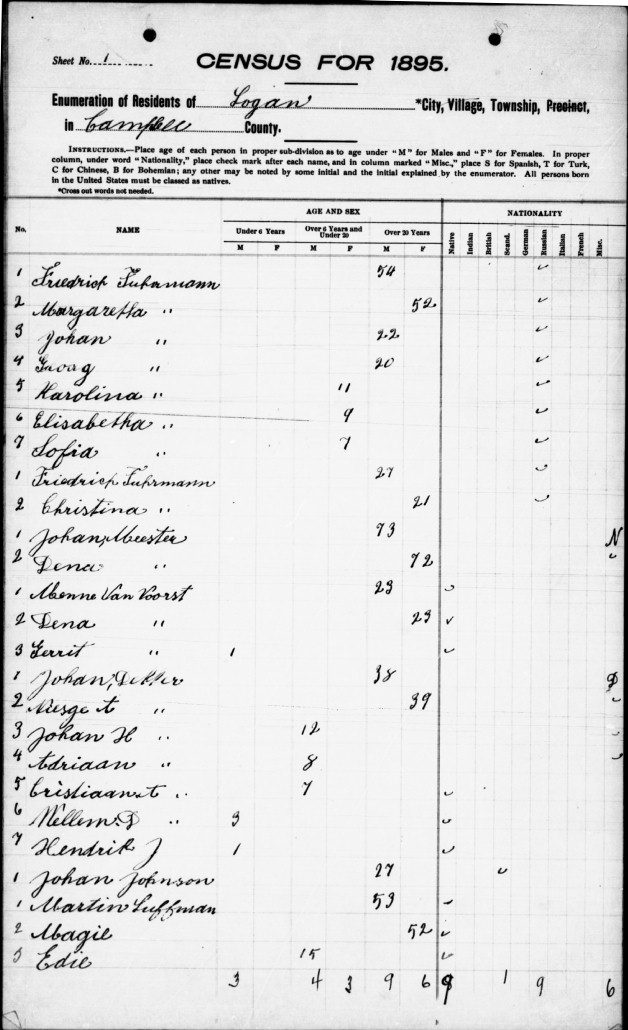 Sheet No. 1
CENSUS FOR 1895.
Enumeration of Residents of Logan *City, Village, Township, Precinct,
in Campbell County.
INSTRUCTIONS.—Place age of each person in proper sub-division as to age under "M" for Males and "F" for Females. In proper
column, under word "Nationality," place check mark after each name, and in column marked "Misc., place S for Spanish, T for Turk,
C for Chinese, B for Bohemian; any other may be noted by some initial and the initial explained by the enumerator. All persons born
in the United States must be classed as natives.
*Cross out words not needed.
AGE AND SEX NATIONALITY
No. NAME Under 6 Years Over 6 Years and Under 20 Over 20 Years Native Indian British Scand. German Russian Italian French Misc.
M F M F M F
1 Friedrich Fuhrmann 54 ✓
2 Margaretha " 52 ✓
3 Johan " 22 ✓
4 Georg " 20 ✓
5 Karolina " 11 ✓
6 Elisabetha " 9 ✓
7 Sofia " 7 ✓
1 Friedrich Fuhrmann 27 ✓
2 Christina " 21 ✓
1 Johan Meester 73 N
2 Dena " 72 ✓
1 Menne Van Voorst 23 ✓
2 Dena " 23 ✓
3 Gerrit " 1 ✓
1 Johan Dekker 38 D
2 " 39 ✓
3 Johan H " 12 ✓
4 Adriaan " 8 ✓
5 Cristiaan A " 7 ✓
6 Wellem D " 3 ✓
7 Hendrik J 1 ✓
1 Johan Johnson 27 ✓
1 Martin Luffman 53 ✓
2 Magie 52 ✓
3 Edie 15 ✓
3 4 3 9 6 1 9 6